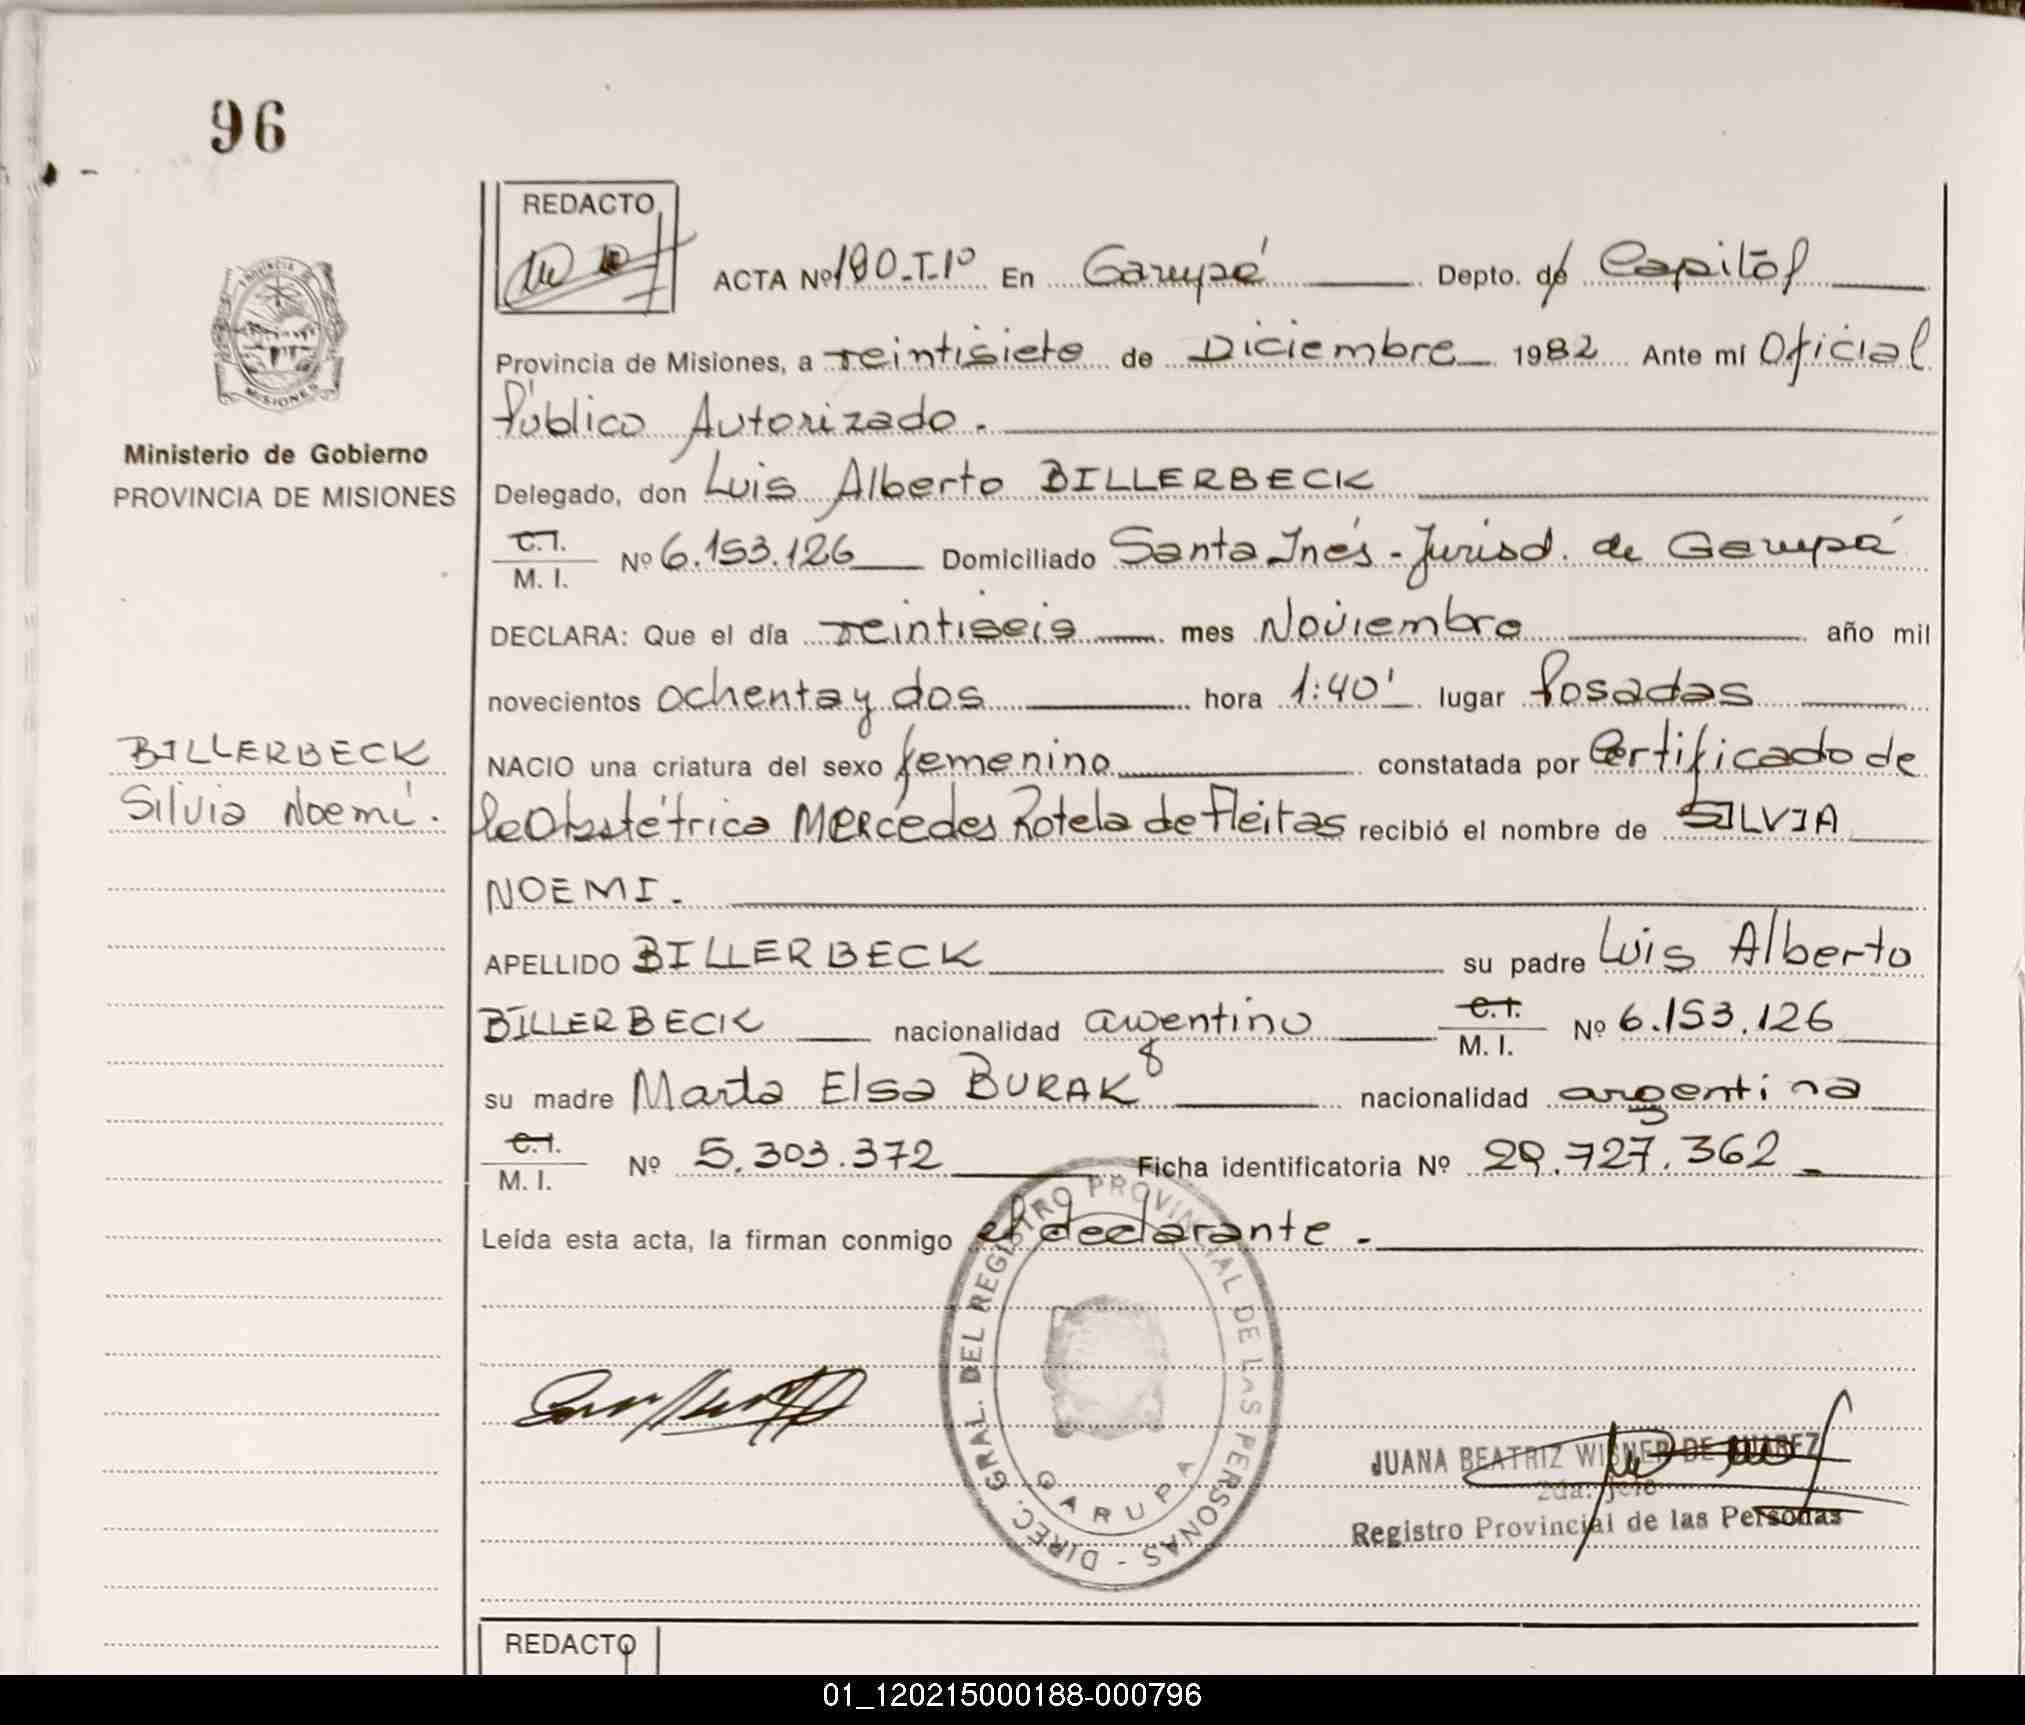 96
REDACTO
ACTA Nº 190-T-1º En Garupá Depto. de Capital
PROVINCIA DE MISIONES
Provincia de Misiones, a veintisiete de Diciembre 1982 Ante mí Oficial
Público Autorizado.
Ministerio de Gobierno
PROVINCIA DE MISIONES
Delegado, don Luis Alberto BILLERBECK
C.I.
M. I. Nº 6.153.126 Domiciliado Santa Inés - Jurisd. de Garupá
DECLARA: Que el día veintiseis mes Noviembre año mil
novecientos ochenta y dos hora 1:40' lugar Posadas
BILLERBECK
Silvia Noemí.
NACIO una criatura del sexo femenino constatada por Certificado de
la Obstétrica MERCEDES Rotela de Fleitas recibió el nombre de SILVIA
NOEMI.
APELLIDO BILLERBECK su padre Luis Alberto
BILLERBECK nacionalidad argentino C.I.
M. I. Nº 6.153.126
su madre Marta Elsa BURAK nacionalidad argentina
C.I.
M. I. Nº 5.303.372 Ficha identificatoria Nº 29.727.362
Leída esta acta, la firman conmigo el declarante.
DIREC. GRAL. DEL REGISTRO PROVINCIAL DE LAS PERSONAS -
GARUPA
JUANA BEATRIZ WISNER DE JUAREZ
2da. Jefe
Registro Provincial de las Personas
REDACTO
01_120215000188-000796